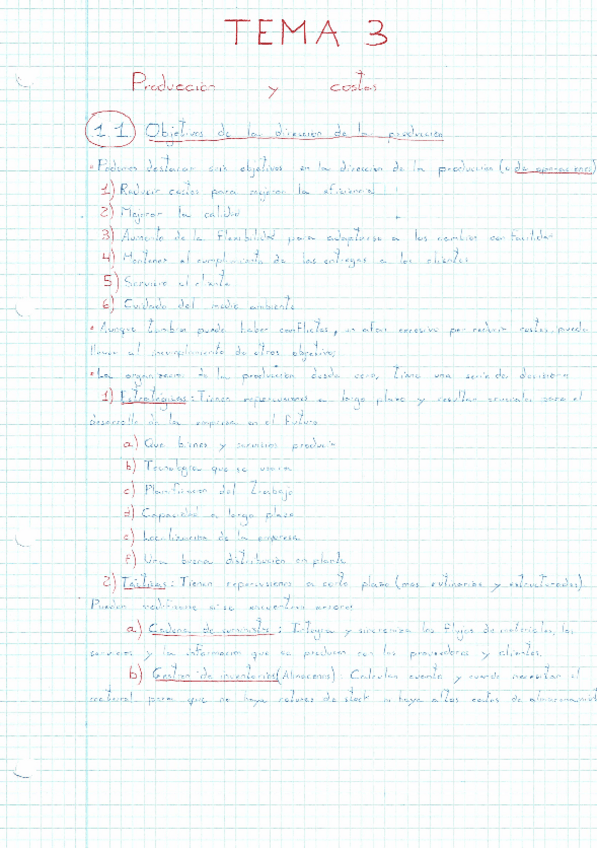 TEMA 3
Producción y costos
1.1 Objetivos de la dirección de la producción
• Podemos destacar seis objetivos en la dirección de la producción (o de operaciones)
1) Reducir costos para mejorar la eficiencia
2) Mejorar la calidad
3) Aumento de la Flexibilidad para adaptarse a los cambios con facilidad
4) Mantener el cumplimiento de las entregas a los clientes
5) Servicio al cliente
6) Cuidado del medio ambiente
• Aunque también puede haber conflictos, un afán excesivo por reducir costos, puede
llevar al incumplimiento de otros objetivos
• La organización de la producción desde cero, tiene una serie de decisiones
1) Estratégicas: Tienen repercusiones a largo plazo y resultan cruciales para el
desarrollo de la empresa en el futuro
a) Que bienes y servicios producir
b) Tecnología que se usará
c) Planificación del Trabajo
d) Capacidad a largo plazo
e) Localización de la empresa
f) Una buena distribución en planta
2) Tácticas: Tienen repercusiones a corto plazo (mas rutinarias y estructuradas)
Pueden modificarse si se encuentran errores
a) Cadena de suministro: Integra y sincroniza los flujos de materiales, los
servicios y la información que se producen con los proveedores y clientes.
b) Gestion de inventarios (Almacenes): Calculan cuanto y cuando necesitan el
material para que no haya roturas de stock ni haya altos costes de